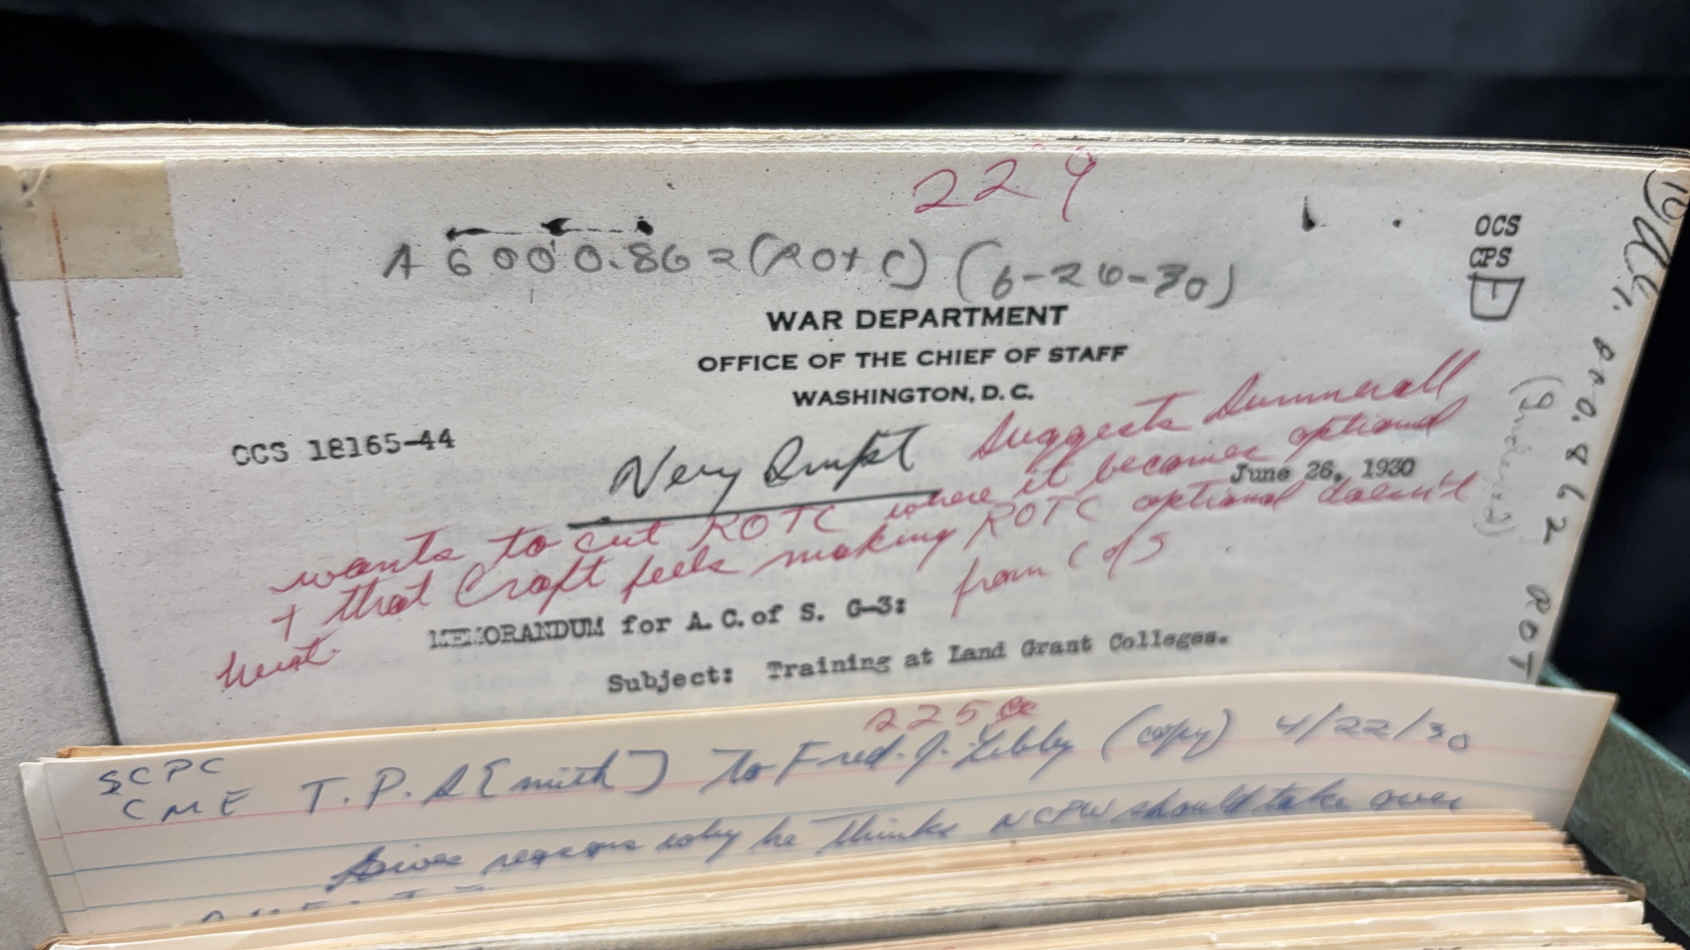 229
A 6000.862 (ROTC) (6-26-30)
OCS
CPS
WAR DEPARTMENT
OFFICE OF THE CHIEF OF STAFF
WASHINGTON, D. C.
OCS 18165-44
Very Impt
June 26, 1930
Suggests Summerall
wants to cut ROTC where it becomes optional
+ that Croft feels making ROTC optional doesn't
hurt
from C of S
MEMORANDUM for A. C. of S. G-3:
Subject: Training at Land Grant Colleges.
ROT
225
SCPC
CME
T. P. S[mith] to Fred. J. Libby (copy) 4/22/30
Gives reasons why he thinks NCPW should take over